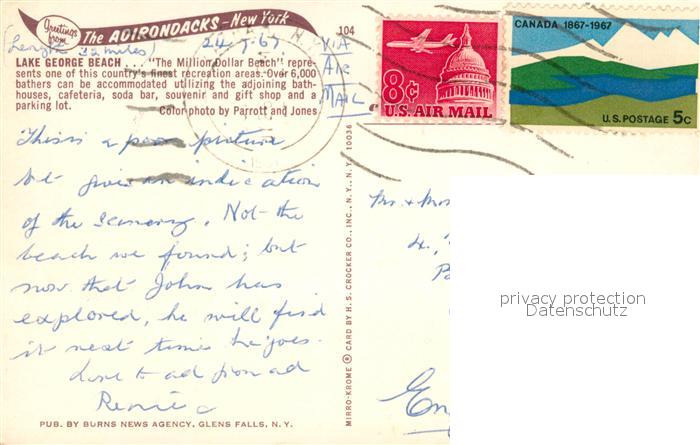 Greetings from
The ADIRONDACKS – New York
104
(Length 32 miles)
24-7-67
VIA
AIR
MAIL
LAKE GEORGE BEACH . . . "The Million Dollar Beach" repre-
sents one of this country's finest recreation areas. Over 6,000
bathers can be accommodated utilizing the adjoining bath-
houses, cafeteria, soda bar, souvenir and gift shop and a
parking lot.
Color photo by Parrott and Jones
This is a poor picture
but gives an indication
of the scenery. Not the
beach we found; but
now that John has
explored, he will find
it next time he goes.
Love to
Renie
PUB. BY BURNS NEWS AGENCY, GLENS FALLS, N. Y.
MIRRO-KROME ® CARD BY H. S. CROCKER CO., INC., N. Y., N. Y. 10036
8¢
U.S. AIR MAIL
CANADA 1867-1967
U.S. POSTAGE 5c
Mr. & Mrs
4.,
privacy protection
Datenschutz